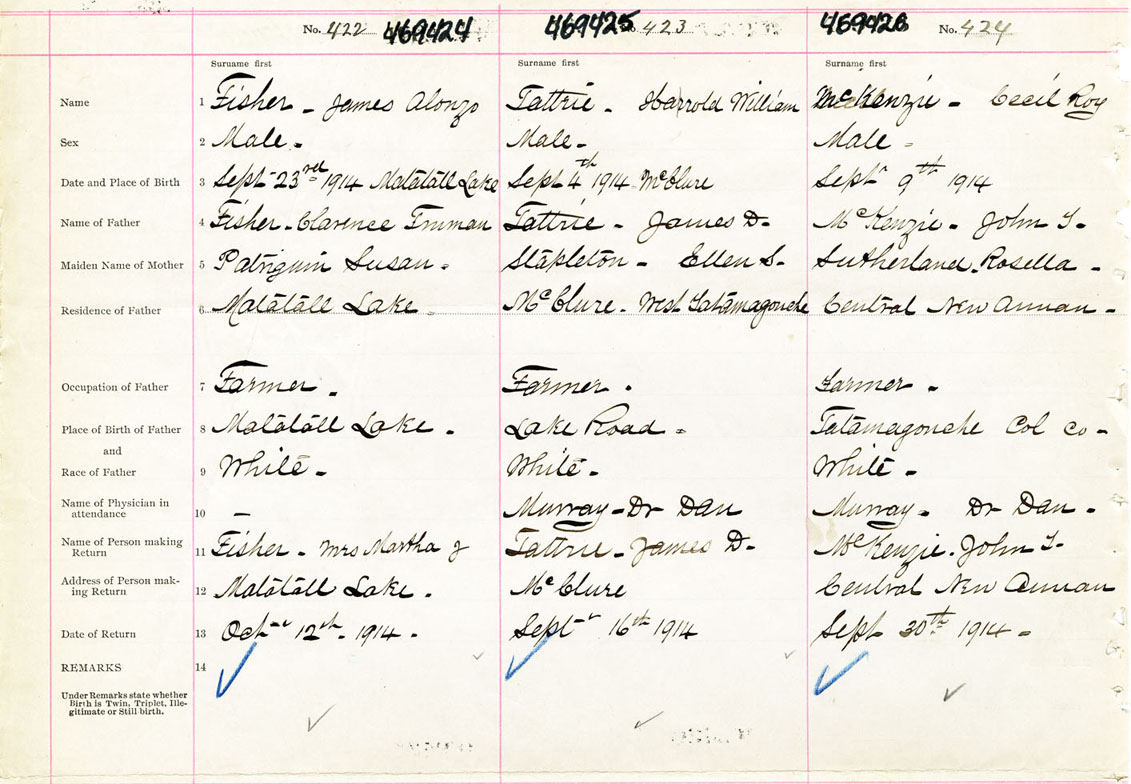 No. 422 469424 469425 No. 423 459426 No. 424
Surname first Surname first Surname first
Name 1 Fisher - James Alonzo Tattrie - Harrold William McKenzie - Cecil Roy
Sex 2 Male - Male - Male -
Date and Place of Birth 3 Sept 23rd 1914 Matatall Lake Sept 4th 1914 McClure Sept 9th 1914
Name of Father 4 Fisher - Clarence Truman Tattrie - James D. McKenzie - John T-
Maiden Name of Mother 5 Patriquin Susan - Stapleton - Ellen S. Sutherland - Rosella -
Residence of Father 6 Matatall Lake - McClure - West Tatamagouche Central New Annan -
Occupation of Father 7 Farmer - Farmer - Farmer -
Place of Birth of Father 8 Matatall Lake - Lake Road - Tatamagouche Col co -
and
Race of Father 9 White - White - White -
Name of Physician in
attendance 10 - Murray - Dr Dan Murray - Dr Dan -
Name of Person making
Return 11 Fisher - Mrs Martha J Tattrie - James D. McKenzie - John T-
Address of Person mak-
ing Return 12 Matatall Lake - McClure Central New Annan
Date of Return 13 Oct 12th - 1914 - Sept 16th 1914 Sept 30th 1914 -
REMARKS 14
Under Remarks state whether
Birth is Twin, Triplet, Ille-
gitimate or Still birth.